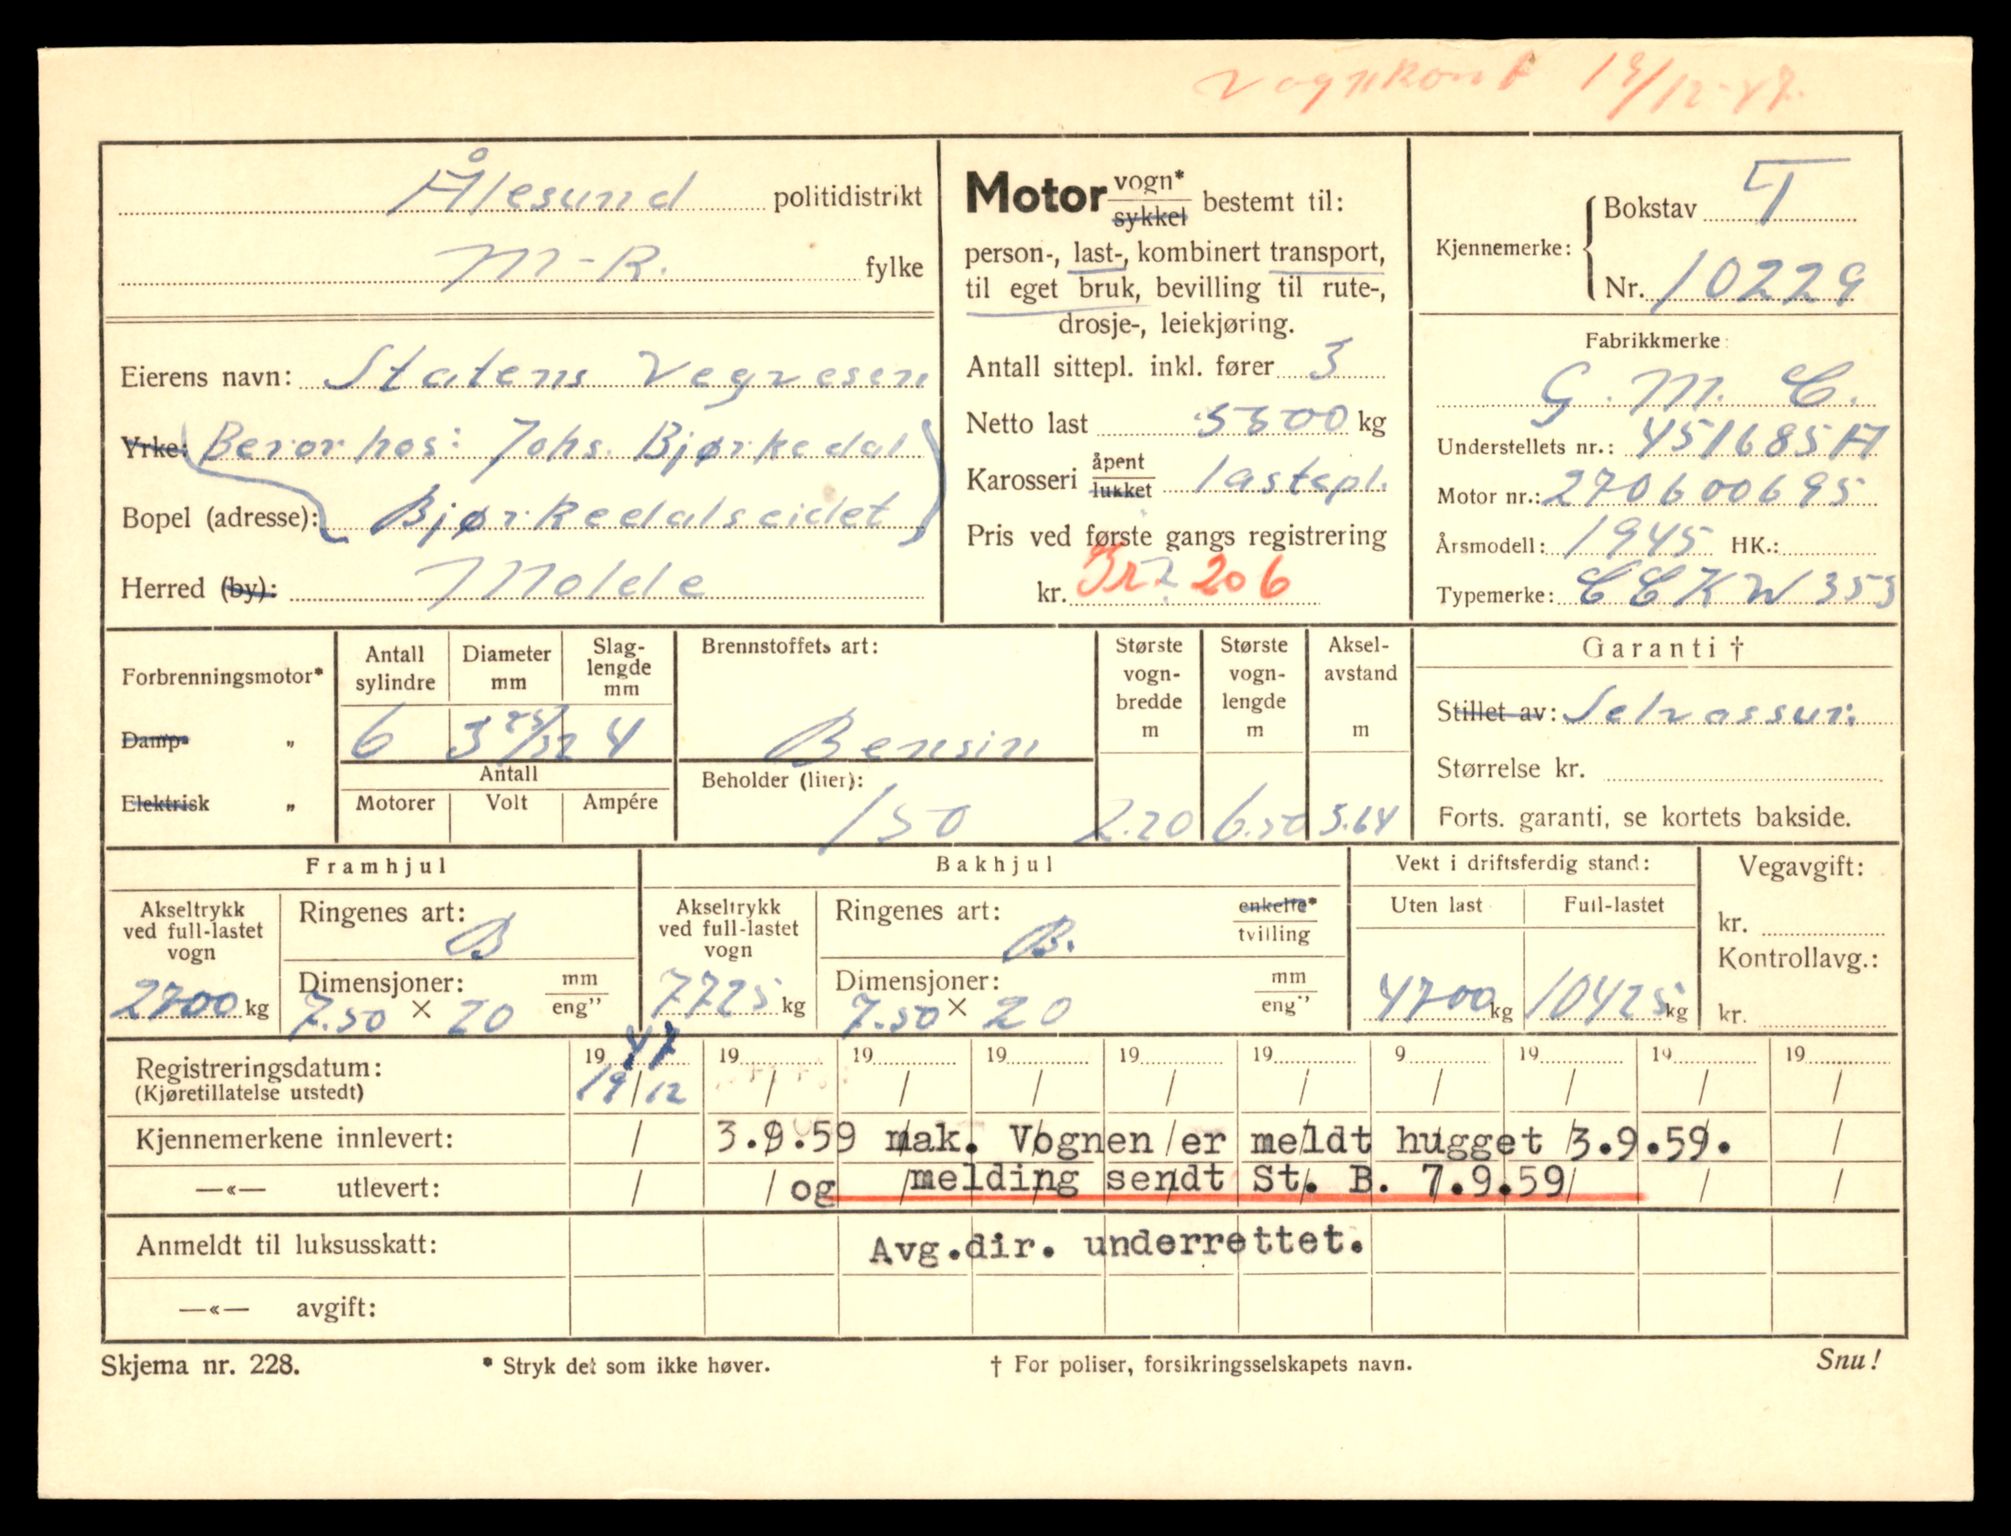 Vognkort 19/12-47.
Ålesund politidistrikt
M-R. fylke
Eierens navn: Statens Vegvesen
Yrke: (Beror hos: Johs. Bjørkedal
Bopel (adresse): Bjørkedalseidet)
Herred (by): Molde
Motor vogn* / sykkel bestemt til:
person-, last-, kombinert transport,
til eget bruk, bevilling til rute-,
drosje-, leiekjøring.
Antall sittepl. inkl. fører 3
Netto last 5500 kg
Karosseri åpent / lukket lastepl.
Pris ved første gangs registrering
kr. 206
Kjennemerke: Bokstav T
Nr. 10229
Fabrikkmerke:
G. M. C.
Understellets nr.: 451685A
Motor nr.: 270600695
Årsmodell: 1945 HK.:
Typemerke: CCKW 353
Forbrenningsmotor*
Damp- „
Elektrisk „
Antall sylindre 6
Diameter mm 3 25/32
Slaglengde mm 4
Antall
Motorer Volt Ampére
Brennstoffets art:
Bensin
Beholder (liter):
150
Største vognbredde m 2.20
Største vognlengde m 6.50
Akselavstand m 3.64
Garanti †
Stillet av: Selvassur.
Størrelse kr.
Forts. garanti, se kortets bakside.
Framhjul
Akseltrykk ved full-lastet vogn 2700 kg
Ringenes art: B
Dimensjoner: mm / eng"
7.50 × 20
Bakhjul
Akseltrykk ved full-lastet vogn 7725 kg
Ringenes art: B. enkelte* / tvilling
Dimensjoner: mm / eng"
7.50 × 20
Vekt i driftsferdig stand:
Uten last Full-lastet
4700 kg 10425 kg
Vegavgift:
kr.
Kontrollavg.:
kr.
Registreringsdatum: 1947 19 19 19 19 19 9 19 19 19
(Kjøretillatelse utstedt) 19/12 / / / / / / / / /
Kjennemerkene innlevert: / 3.9.59 mak. Vognen er meldt hugget 3.9.59. /
—«— utlevert: / / og melding sendt St. B. 7.9.59 / /
Anmeldt til luksusskatt: Avg.dir. underrettet.
—«— avgift:
Skjema nr. 228. * Stryk det som ikke høver. † For poliser, forsikringsselskapets navn. Snu!